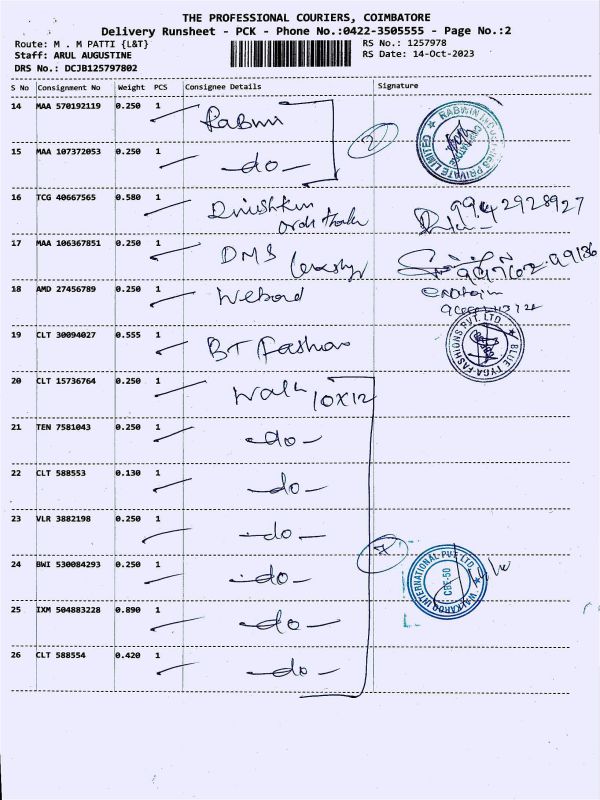 THE PROFESSIONAL COURIERS, COIMBATORE
Delivery Runsheet - PCK - Phone No.:0422-3505555 - Page No.:2
Route: M . M PATTI {L&T} RS No.: 1257978
Staff: ARUL AUGUSTINE RS Date: 14-Oct-2023
DRS No.: DCJB125797802
S No Consignment No Weight PCS Consignee Details Signature
14 MAA 570192119 0.250 1 Rabwin
2
RABWIN INDUSTRIES PRIVATE LIMITED
15 MAA 107372053 0.250 1 -do-
16 TCG 40667565 0.580 1
9942928927
17 MAA 106367851 0.250 1 DMS
18 AMD 27456789 0.250 1
19 CLT 30094027 0.555 1 BT Fashion
BLUE TYGA FASHIONS PVT. LTD
20 CLT 15736764 0.250 1 Walk 10x12
21 TEN 7581043 0.250 1 -do-
22 CLT 588553 0.130 1 -do-
23 VLR 3882198 0.250 1 -do-
7
24 BWI 530084293 0.250 1 -do-
WALKAROO INTERNATIONAL PVT LTD
CBE-50
25 IXM 504883228 0.890 1 -do-
26 CLT 588554 0.420 1 -do-